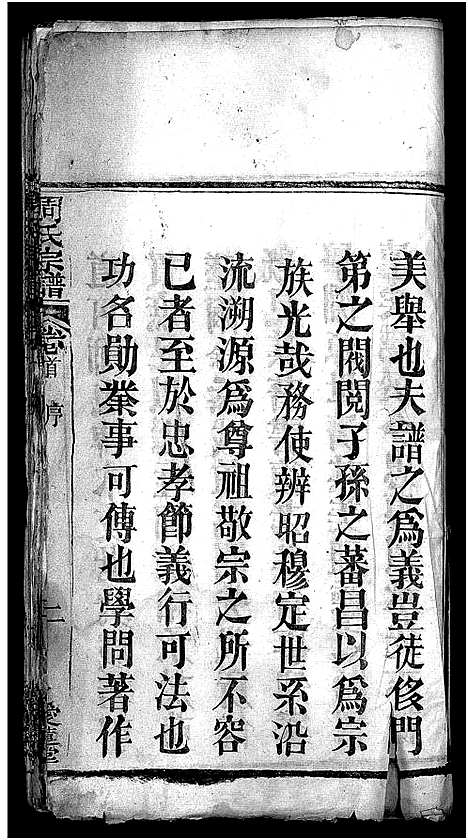 美舉也夫譜之爲義豈徒侈門
第之閥閱子孫之蕃昌以爲宗
族光哉務使辨昭穆定世系沿
流溯源爲尊祖敬宗之所不容
已者至於忠孝節義行可法也
功名勛業事可傳也學問著作
周氏宗譜 卷首 序 二 愛蓮堂